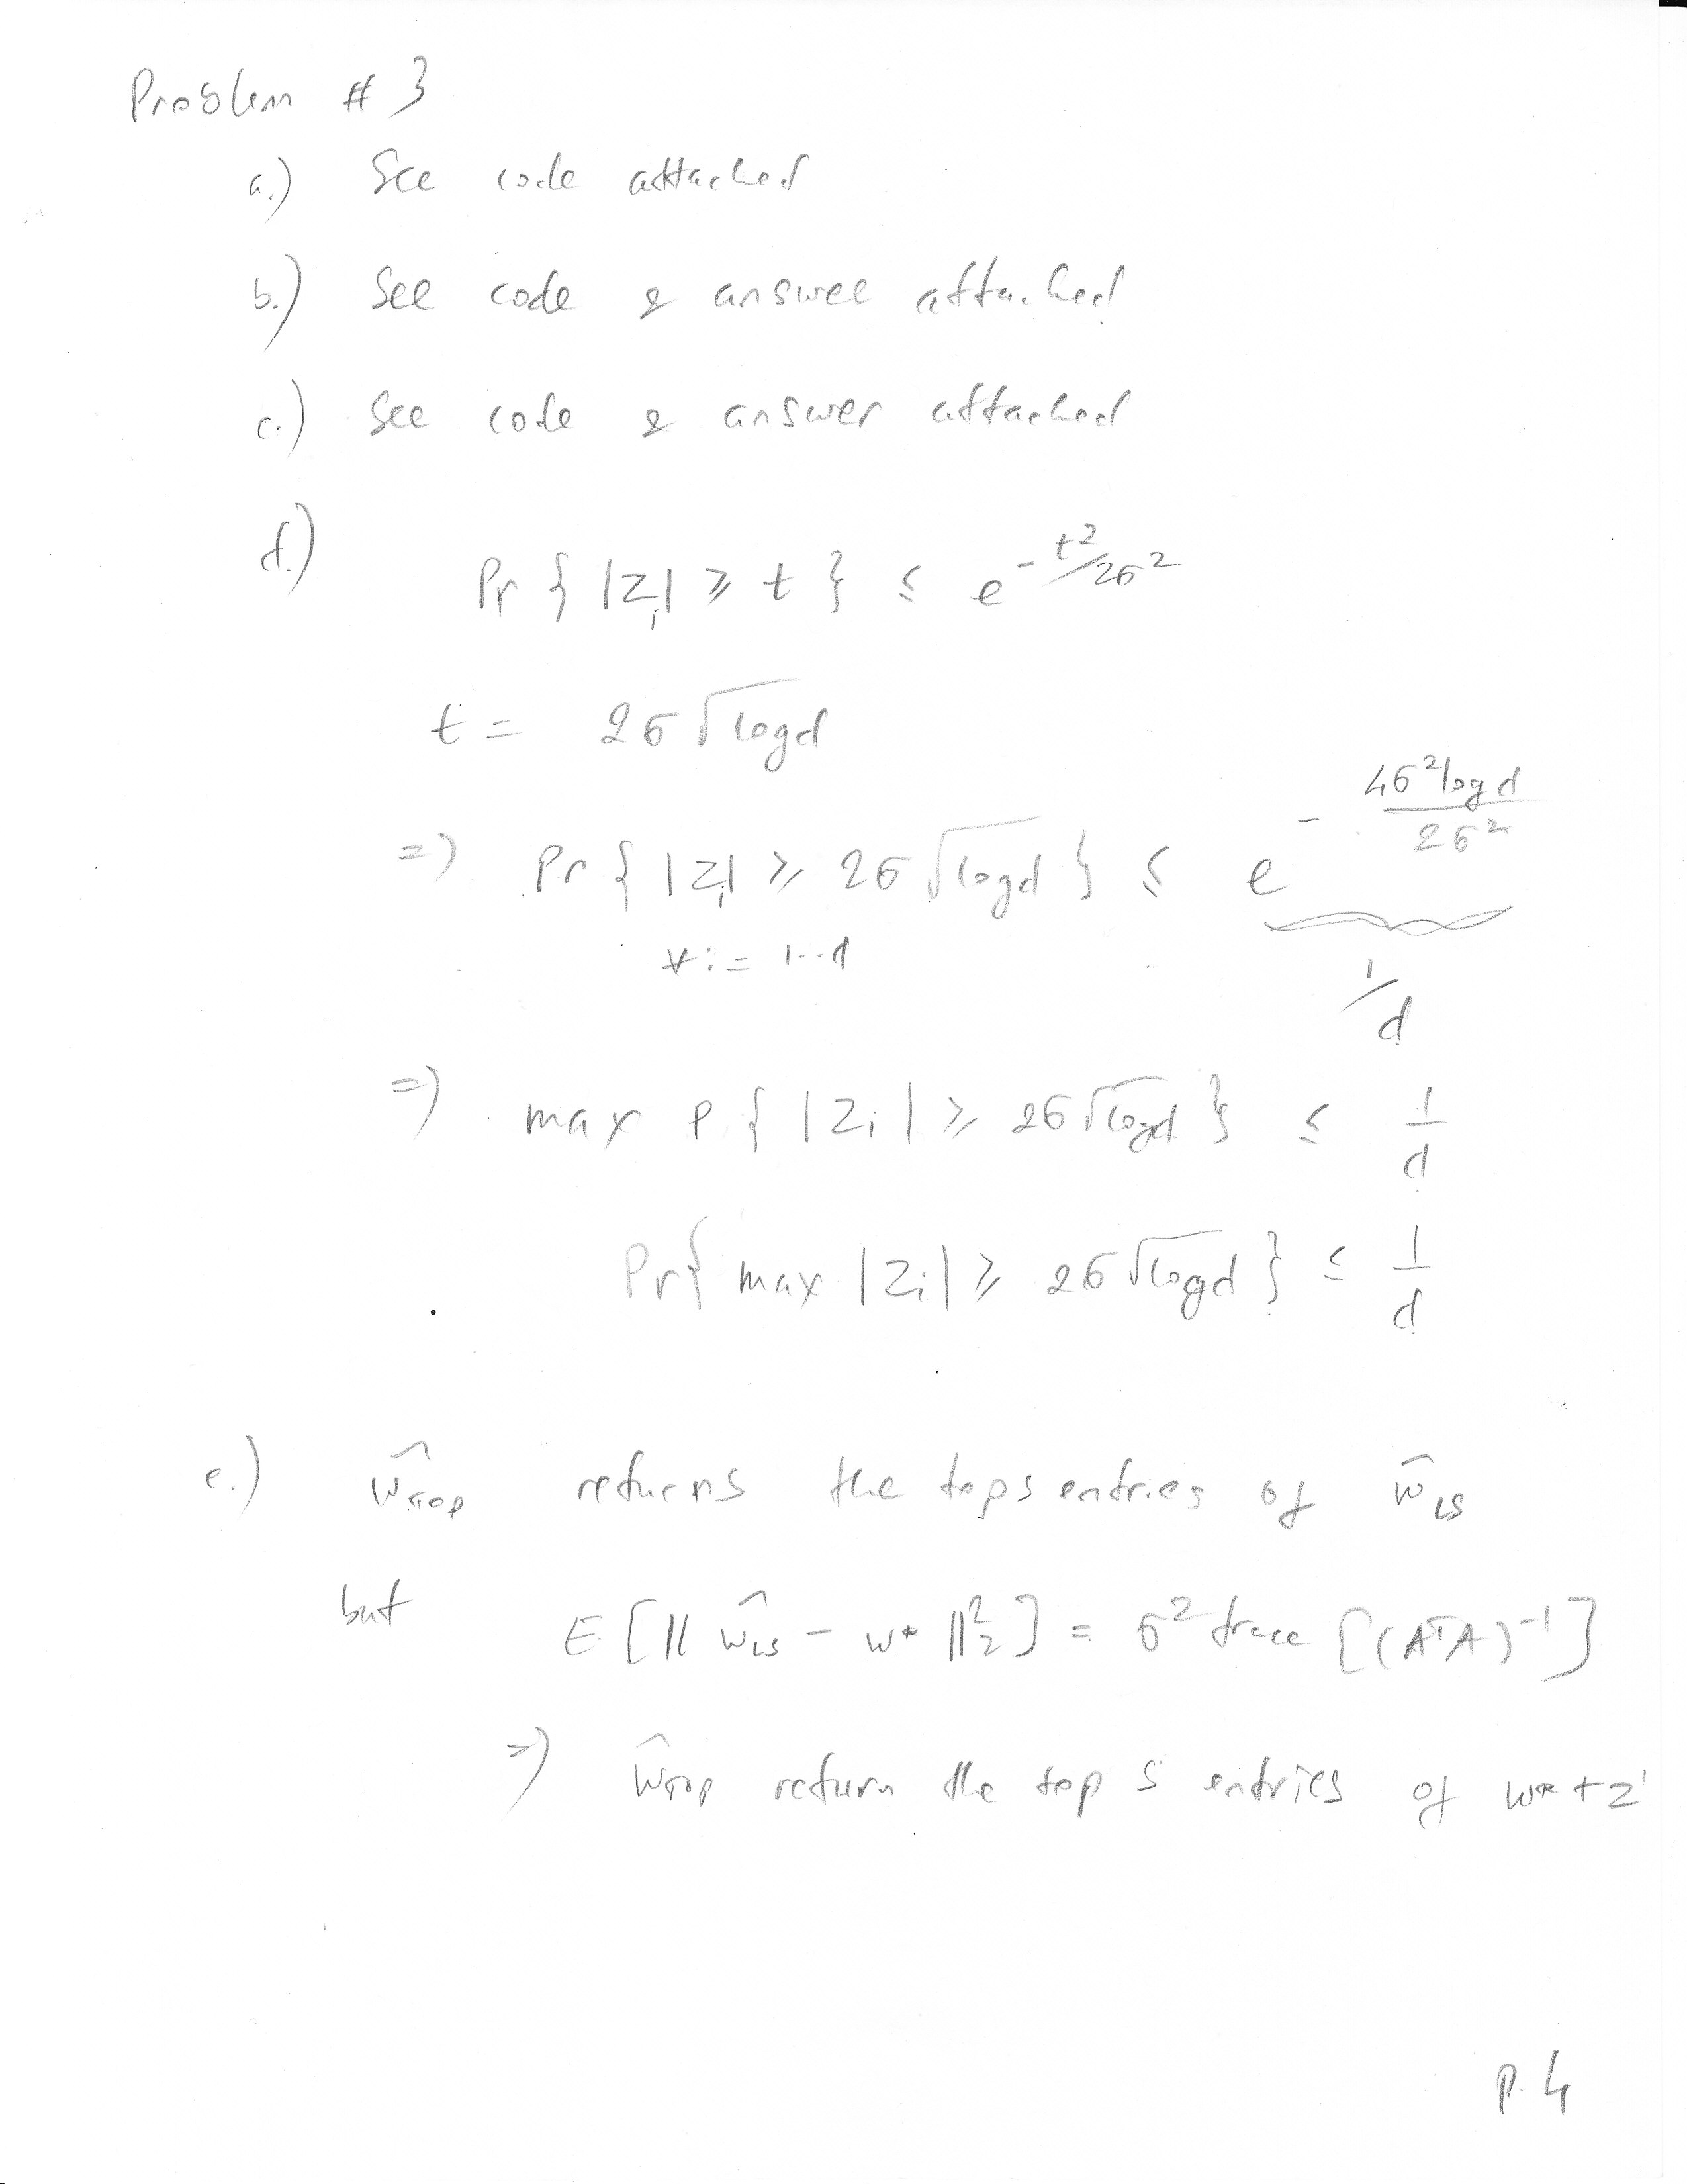 Problem # 3
a.) See code attached
b.) See code & answer attached
c.) See code & answer attached
d.)
Pr { |Z_i| ≥ t } ≤ e^{- t^2/2σ^2}
t = 2σ √logd
=> Pr { |Z_i| ≥ 2σ √logd } ≤ e^{- 4σ^2 log d / 2σ^2}
∀ i = 1..d
1/d
=> max P { |Z_i| ≥ 2σ √logd } ≤ 1/d
Pr{ max |Z_i| ≥ 2σ √logd } ≤ 1/d
e.) ŵ_TOP returns the top s entries of ŵ_LS
but E [ || ŵ_LS - w* ||_2^2 ] = σ^2 trace [(A^T A)^{-1}]
=> ŵ_TOP return the top s entries of w* + z'
P. 4